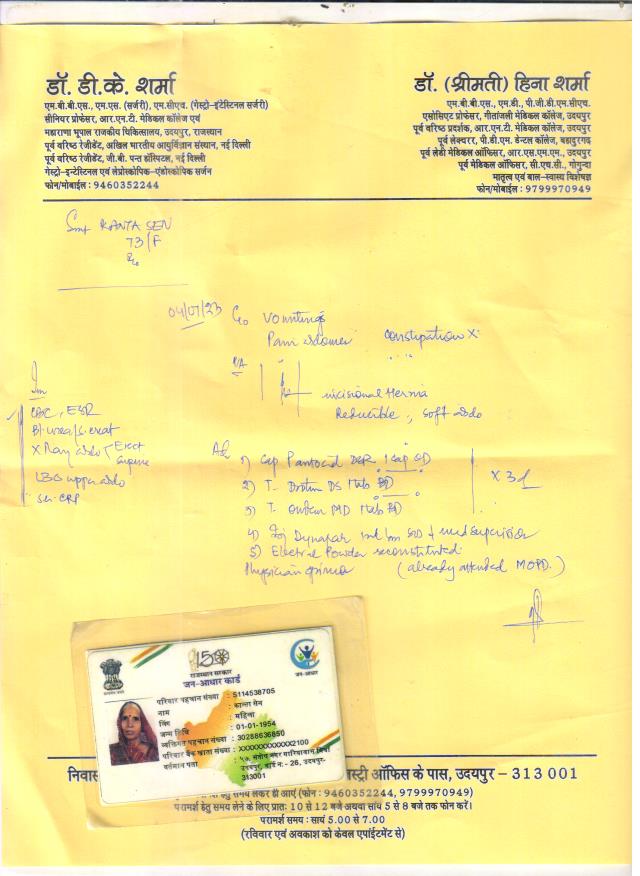 डॉ. डी.के. शर्मा
एम.बी.बी.एस., एम.एस. (सर्जरी), एम.सीएच. (गेस्ट्रो-इंटेस्टिनल सर्जरी)
सीनियर प्रोफेसर, आर.एन.टी. मेडिकल कॉलेज एवं
महाराणा भूपाल राजकीय चिकित्सालय, उदयपुर, राजस्थान
पूर्व वरिष्ठ रेजीडेंट, अखिल भारतीय आयुर्विज्ञान संस्थान, नई दिल्ली
पूर्व वरिष्ठ रेजीडेंट, जी.बी. पन्त हॉस्पिटल, नई दिल्ली
गेस्ट्रो-इन्टेस्टिनल एवं लेप्रोस्कोपिक-एंडोस्कोपिक सर्जन
फोन/मोबाईल : 9460352244
डॉ. (श्रीमती) हिना शर्मा
एम.बी.बी.एस., एम.डी., पी.जी.डी.एम.सीएच.
एसोसिएट प्रोफेसर, गीतांजली मेडिकल कॉलेज, उदयपुर
पूर्व वरिष्ठ प्रदर्शक, आर.एन.टी. मेडिकल कॉलेज, उदयपुर
पूर्व लेक्चरर, पी.डी.एम. डेन्टल कॉलेज, बहादुरगढ़
पूर्व लेडी मेडिकल ऑफिसर, आर.एस.एम.एम., उदयपुर
पूर्व मेडिकल ऑफिसर, सी.एच.सी., गोगुन्दा
मातृत्व एवं बाल-स्वास्थ्य विशेषज्ञ
फोन/मोबाईल : 9799970949
Smt KANTA SEN
73/F
04/07/23 C/o Vomitings
Pain abdomen constipation X
P/A
incisional Hernia
Reducible, soft abdo
CBC, ESR
Bl. urea/S. creat
X Ray abdo Erect
Supine
USG upper abdo
Ser. CRP
1) Cap Pantocid DSR 1 cap OD
2) T. Drotin DS 1 tab BD X 3d
3) T. MD 1 tab BD
4) Inj Dynapar 1ml Im med supervision
5) Electral Powder reconstituted
Physician opinion (already attended MOPD.)
राजस्थान सरकार
जन-आधार कार्ड
परिवार पहचान संख्या : 5114538705
नाम : कान्ता सेन
लिंग : महिला
जन्म तिथि : 01-01-1954
व्यक्तिगत पहचान संख्या : 30288636850
परिवार बैंक खाता संख्या : XXXXXXXXXXXX2100
वर्तमान पता
उदयपुर, वार्ड नं.- 26, उदयपुर-
313001
निवास ऑफिस के पास, उदयपुर – 313 001
हेतु समय लेकर ही आएं (फोन : 9460352244, 9799970949)
परामर्श हेतु समय लेने के लिए प्रातः 10 से 12 बजे अथवा सायं 5 से 8 बजे तक फोन करें।
परामर्श समय : सायं 5.00 से 7.00
(रविवार एवं अवकाश को केवल एपॉइंटमेंट से)